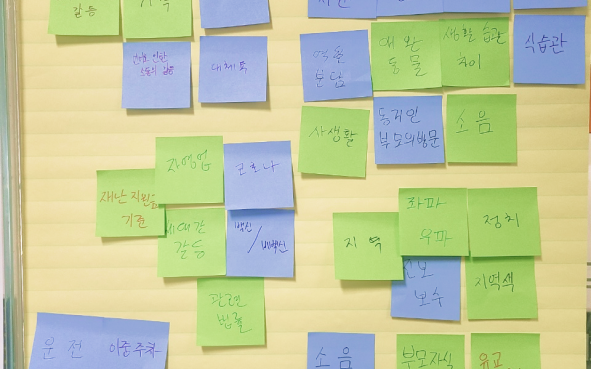 갈등
대체육
영준
분담
애완
동물
생활 습관
차이
식습관
사생활
동거인
부모의방문
소음
자영업
코로나
재난 지원금
기준
세대간
갈등
백신
/비백신
관련
법률
지역
좌파
우파
정치
진보
보수
지역색
운전
이중주차
소음
부모자식
유교